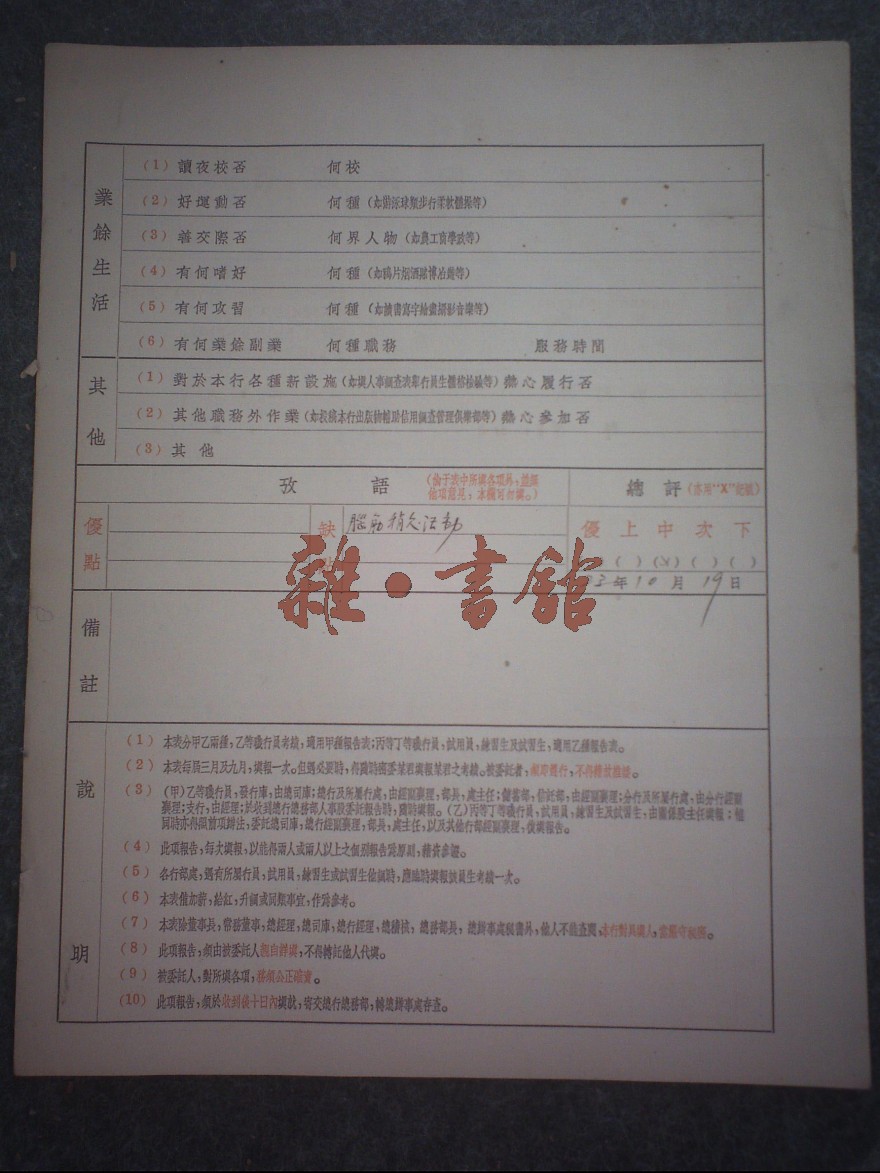 業餘生活
(1) 讀夜校否 何校
(2) 好運動否 何種
(3) 善交際否 何界人物 (如農工商學政等)
(4) 有何嗜好 何種 (如鴉片烟酒賭博冶遊等)
(5) 有何攻習 何種 (如讀書寫字繪畫攝影音樂等)
(6) 有何業餘副業 何種職務 服務時間
其他
(1) 對於本行各種新設施 熱心履行否
(2) 其他職務外作業 熱心參加否
(3) 其他
攷語 (倘于表中所填各項外,並無
他項意見,本欄可勿填。) 總評 (亦用“X”記號)
優點
缺點
優 上 中 次 下
( ) (X) ( ) ( )
年 10 月 19 日
雜·書館
備註
說明
(1) 本表分甲乙兩種,乙等職行員考績,適用甲種報告表;丙等丁等職行員,試用員,練習生及試習生,適用乙種報告表。
(2) 本表每屆三月及九月,填報一次。但遇必要時,得隨時密委某君填報某君之考績。被委託者,
(3) (甲)乙等職行員,發行庫,由總司庫;總行及所屬行處,由經副襄理,部長,處主任;儲蓄部,信託部,由經副襄理;分行及所屬行處,由分行經副
襄理;支行,由經理;於收到總行總務部人事股委託報告時,隨時填報。(乙)丙等丁等職行員,試用員,練習生及試習生,由關係股主任填報;惟
同時亦得照前項辦法,委託總司庫,總行經副襄理,部長,處主任,以及其他行部經副襄理,復填報告。
(4) 此項報告,每次填報,以能得兩人或兩人以上之個別報告為原則,藉資參證。
(5) 各行部處,遇有所屬行員,試用員,練習生或試習生他調時,應臨時填報該員生考績一次。
(6) 本表備加薪,給紅,升調或同類事宜,作為參考。
(7) 本表除董事長,常務董事,總經理,總司庫,總行經理,總稽核,總務部長,總辦事處秘書外,他人不能查閱,本行對員填人,當嚴守秘密。
(8) 此項報告,須由被委託人親自詳填,不得轉託他人代填。
(9) 被委託人,對所填各項,務須公正確實。
(10) 此項報告,須於收到後十日內填就,寄交總行總務部,轉總辦事處存查。